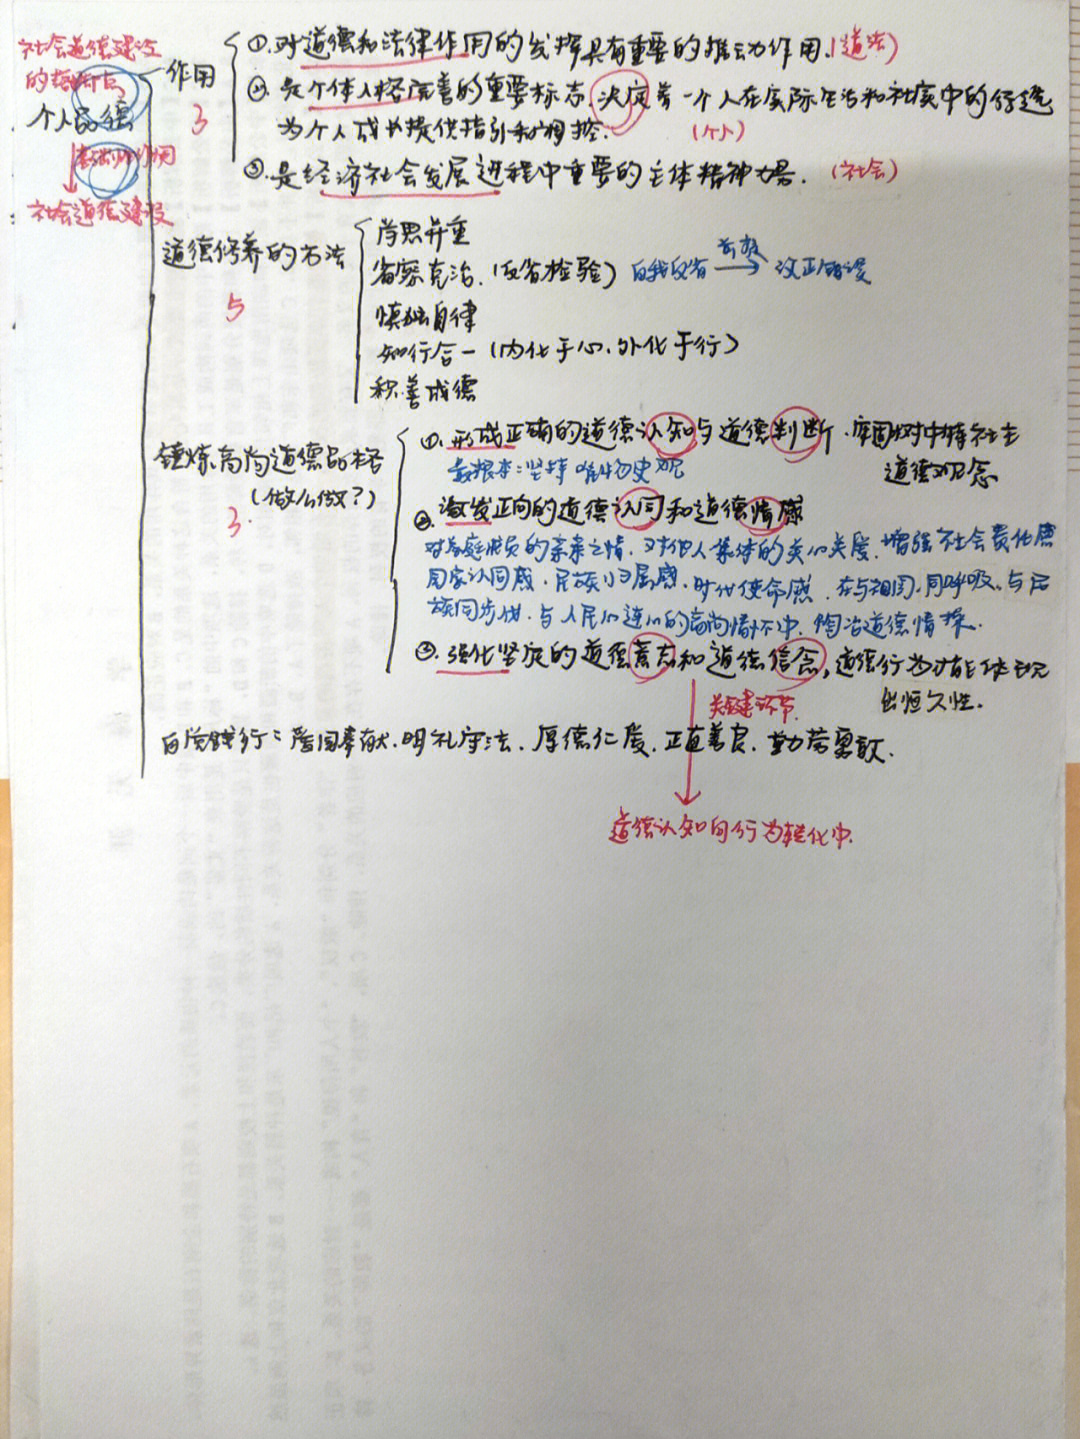 社会道德建设
的落脚点
个人品德
基础性作用
社会道德建设
作用
3
①.对道德和法律作用的发挥具有重要的推动作用.(道法)
②.是个体人格完善的重要标志.决定着一个人在实际生活和社实中的行选
为个人成长提供指引和调控.
(个人)
③.是经济社会发展进程中重要的主体精神力量. (社会)
道德修养的方法
5
学思并重
省察克治.(反省检验) 自我反省 → 改正错误
慎独自律
知行合一(内化于心.外化于行)
积善成德
锤炼高尚道德品格
(做么做?)
3.
①.形成正确的道德认知与道德判断.牢固树中特社主
道德观念
最根本:坚持唯物史观
②.激发正向的道德认同和道德情感
对家庭成员的亲亲之情.对他人集体的关心关爱.增强社会责任感
国家认同感.民族归属感.时代使命感.在与祖国同呼吸、与民
族同步伐.与人民心连心的高尚情怀中.陶冶道德情操.
③.强化坚定的道德意志和道德信念,道德行为才能体现
出恒久性.
关键环节
自觉践行:爱国奉献.明礼守法.厚德仁爱.正直善良.勤劳勇敢.
道德认知向行为转化中.